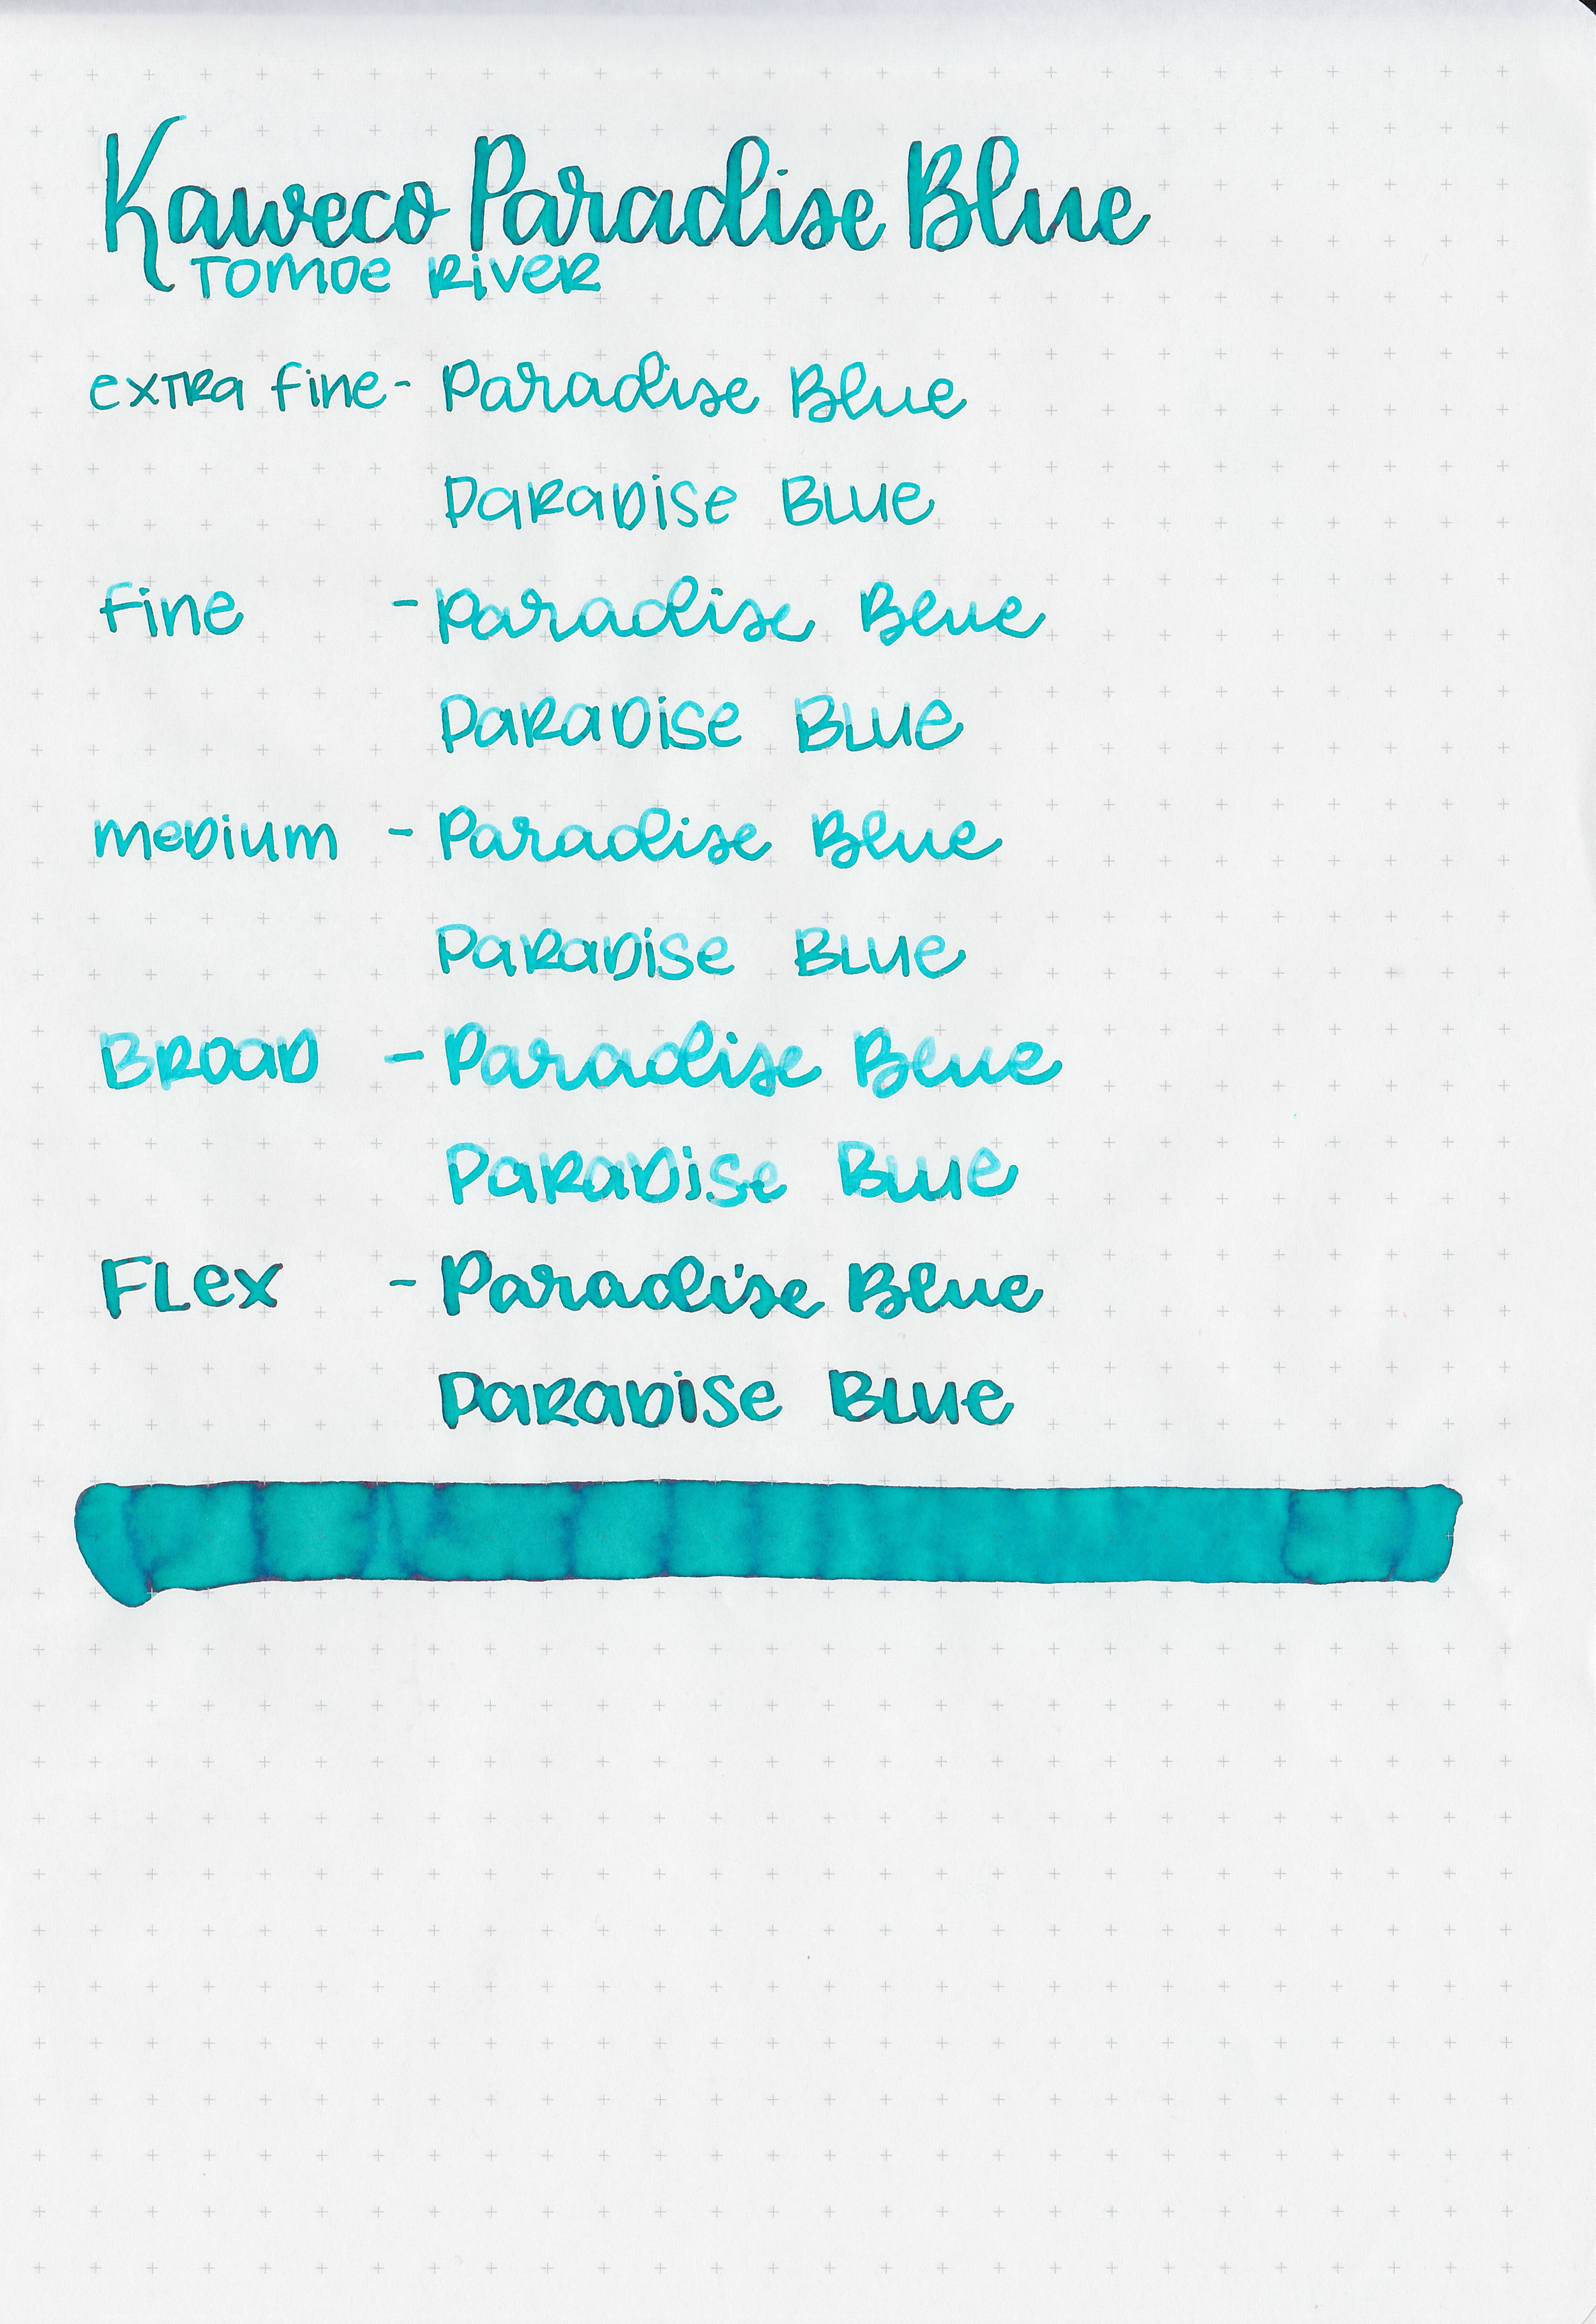 Kaweco Paradise Blue
TOMOE RiVER
exTRa fine - Paradise Blue
PaRaDise BLUe
fine - Paradise Blue
PaRaDise BLUe
meDium - Paradise Blue
PaRaDise BLUe
BROAD - Paradise Blue
PaRaDise BLUe
FLex - Paradise Blue
PaRaDise BLUe